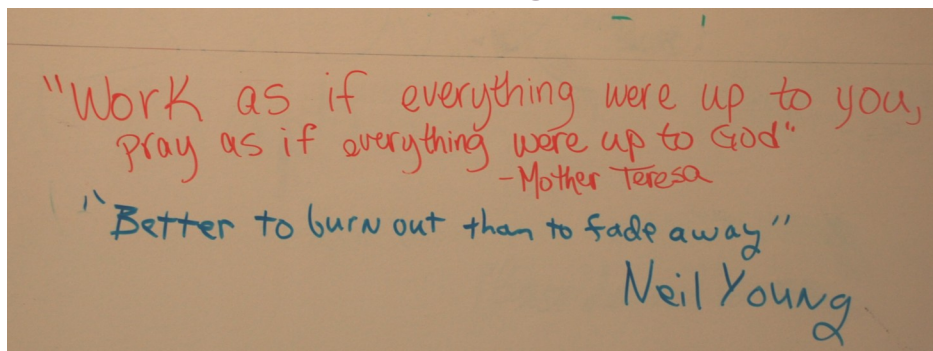 "Work as if everything were up to you,
pray as if everything were up to God"
-Mother Teresa
"Better to burn out than to fade away"
Neil Young